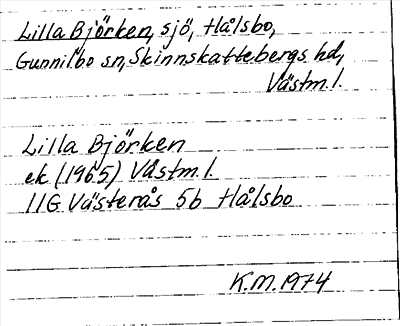 Lilla Björken, sjö, Hålsbo,
Gunnilbo sn, Skinnskattebergs hd,
Västm.l.
Lilla Björken
ek (1965) Västm.l.
11G Västerås 5b Hålsbo
K.M. 1974